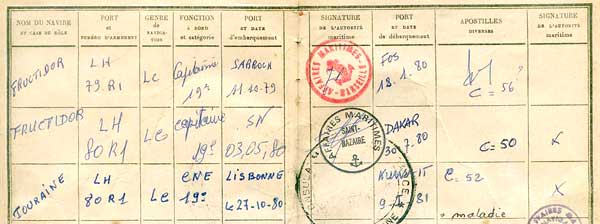 NOM DU NAVIRE
ET CASE DE RÔLE
PORT
ET
NUMÉRO D'ARMEMENT
GENRE
DE
NAVIGA-
TION
FONCTION
A BORD
et catégorie
PORT
ET DATE
d'embarquement
SIGNATURE
DE L'AUTORITÉ
maritime
PORT
ET DATE
de débarquement
APOSTILLES
DIVERSES
SIGNATURE
DE L'AUTORITÉ
maritime
FRUCTIDOR
LH
79.R1
LC
Capitaine
19e
11-10-79
AFFAIRES MARITIMES
MARSEILLE
FOS
18.1.80
C=56
FRUCTIDOR
LH
80R1
LC
capitaine
19e
SN
03.05.80
AFFAIRES MARITIMES
SAINT-
NAZAIRE
DAKAR
30 7.80
C=50
X
TOURAINE
LH
80R1
LC
CNE
19e
LISBONNE
LE 27-10-80
81
C=52
X
maladie